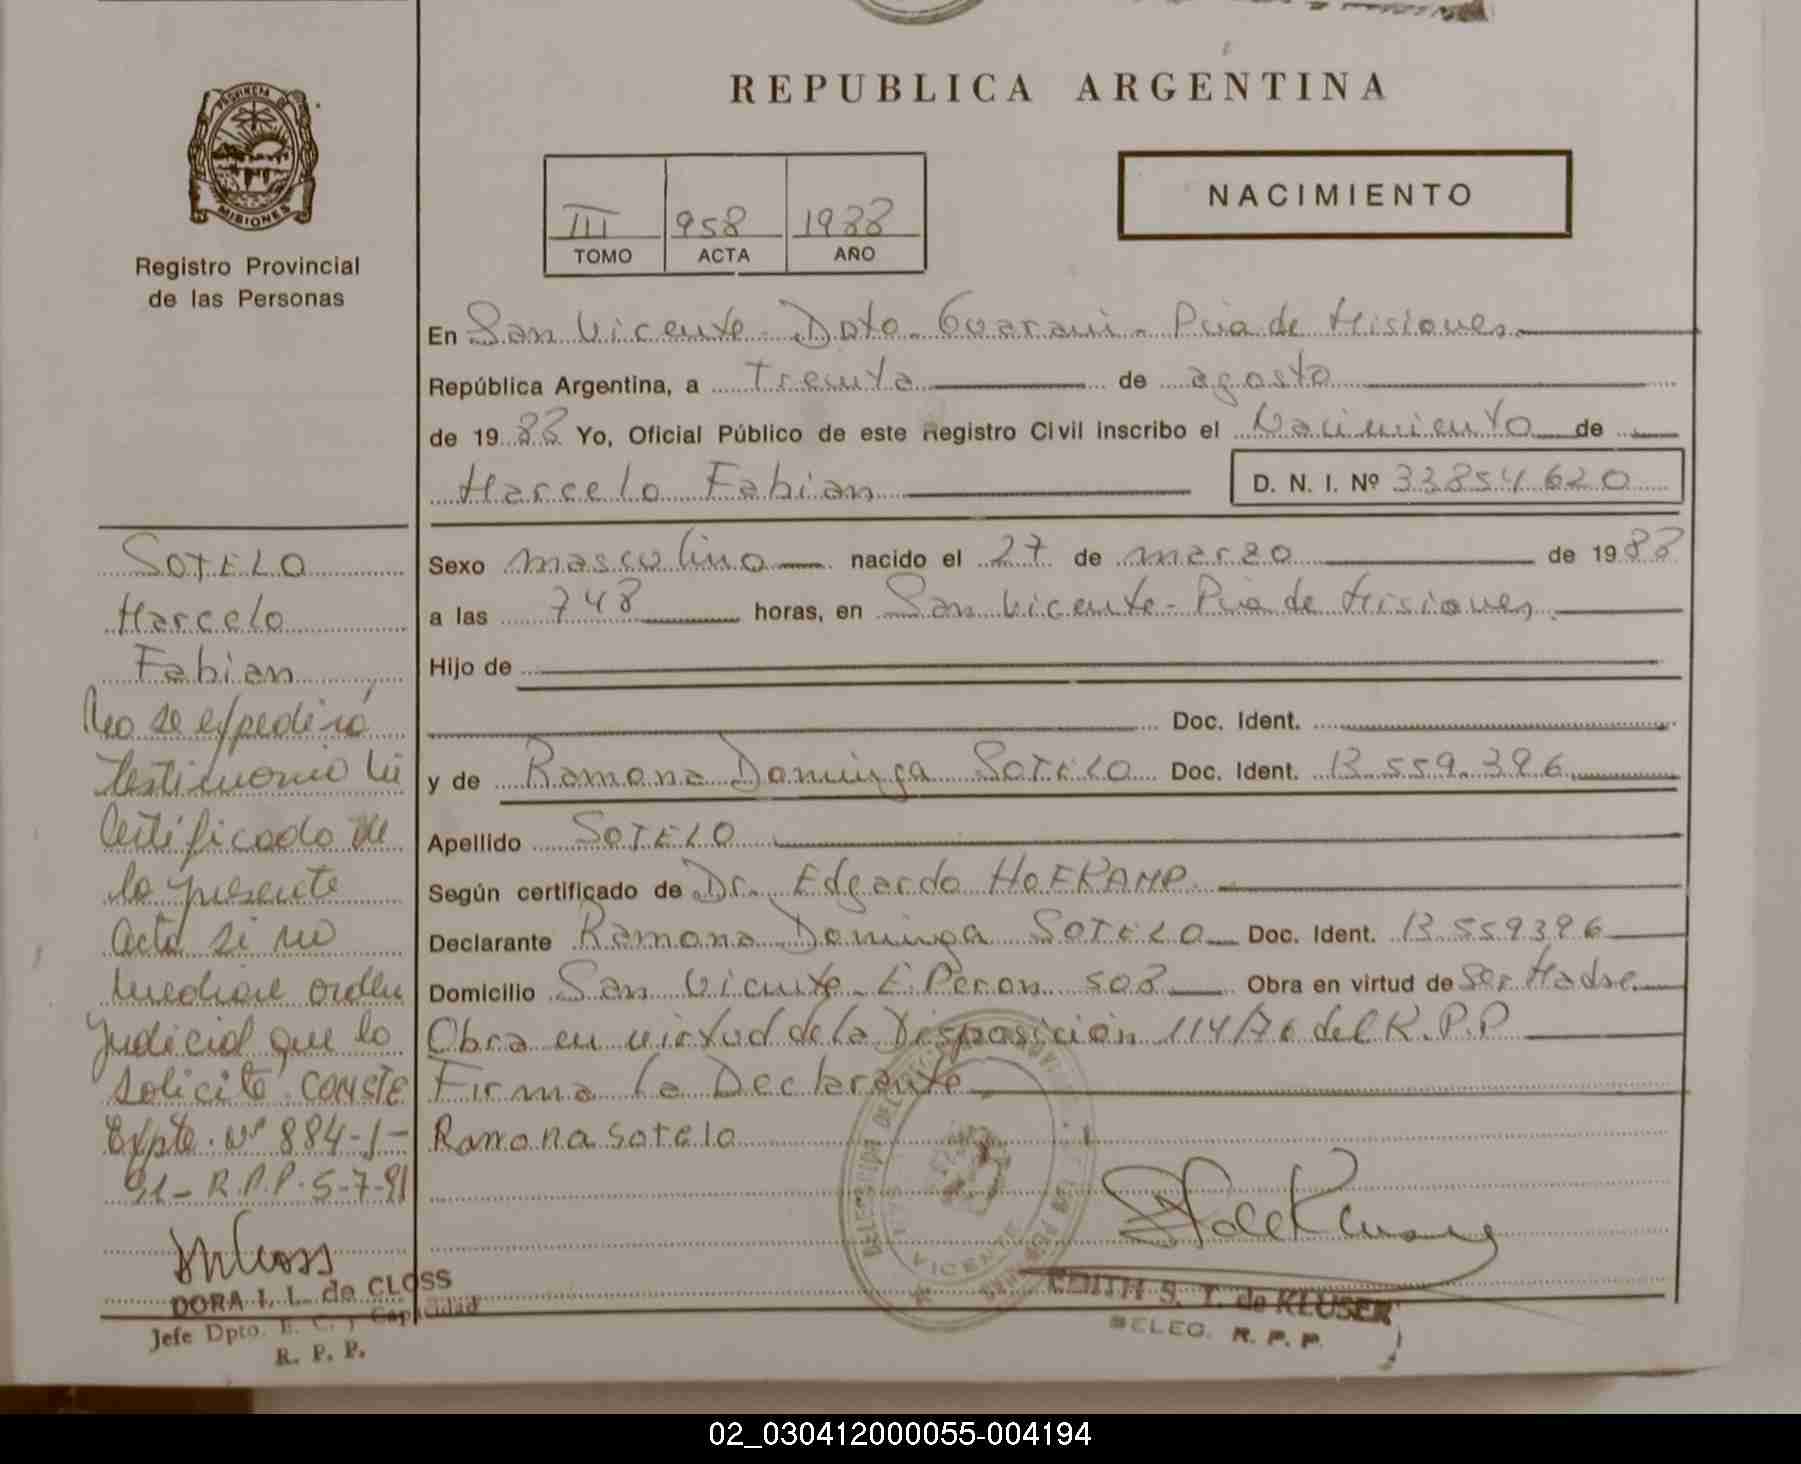 REPUBLICA ARGENTINA
PROVINCIA DE
MISIONES
Registro Provincial
de las Personas
NACIMIENTO
III 958 1988
TOMO ACTA AÑO
En San Vicente - Dpto. Guarani - Pcia de Misiones.
República Argentina, a Treinta de agosto
de 1988 Yo, Oficial Público de este Registro Civil inscribo el Nacimiento de
Marcelo Fabian D. N. I. Nº 33854620
Sexo masculino nacido el 27 de marzo de 1988
a las 748 horas, en San Vicente - Pcia de Misiones.
Hijo de
Doc. Ident.
y de Ramona Dominga SOTELO Doc. Ident. 13.559.396
Apellido SOTELO
Según certificado de Dr. Edgardo HOFKAMP.
Declarante Ramona Dominga SOTELO Doc. Ident. 13.559396
Domicilio San Vicente - E. Peron 508 Obra en virtud de Ser Madre.
Obra en virtud de la Disposición 114/76 del R.P.P
Firma la Declarante
Ramona Sotelo
SOTELO
Marcelo
Fabian
No se expedirá
testimonio ni
Certificado de
la presente
acta si no
mediare orden
judicial que lo
solicite. CONSTE
Expte. Nº 884-J-
91- R.P.P. 5-7-91
DORA I. L. de CLOSS
Jefe Dpto. E. C. y Capacidad
R. P. P.
VICENTE
EDITH S. T. de KLUSER
DELEG. R. P. P.
02_030412000055-004194